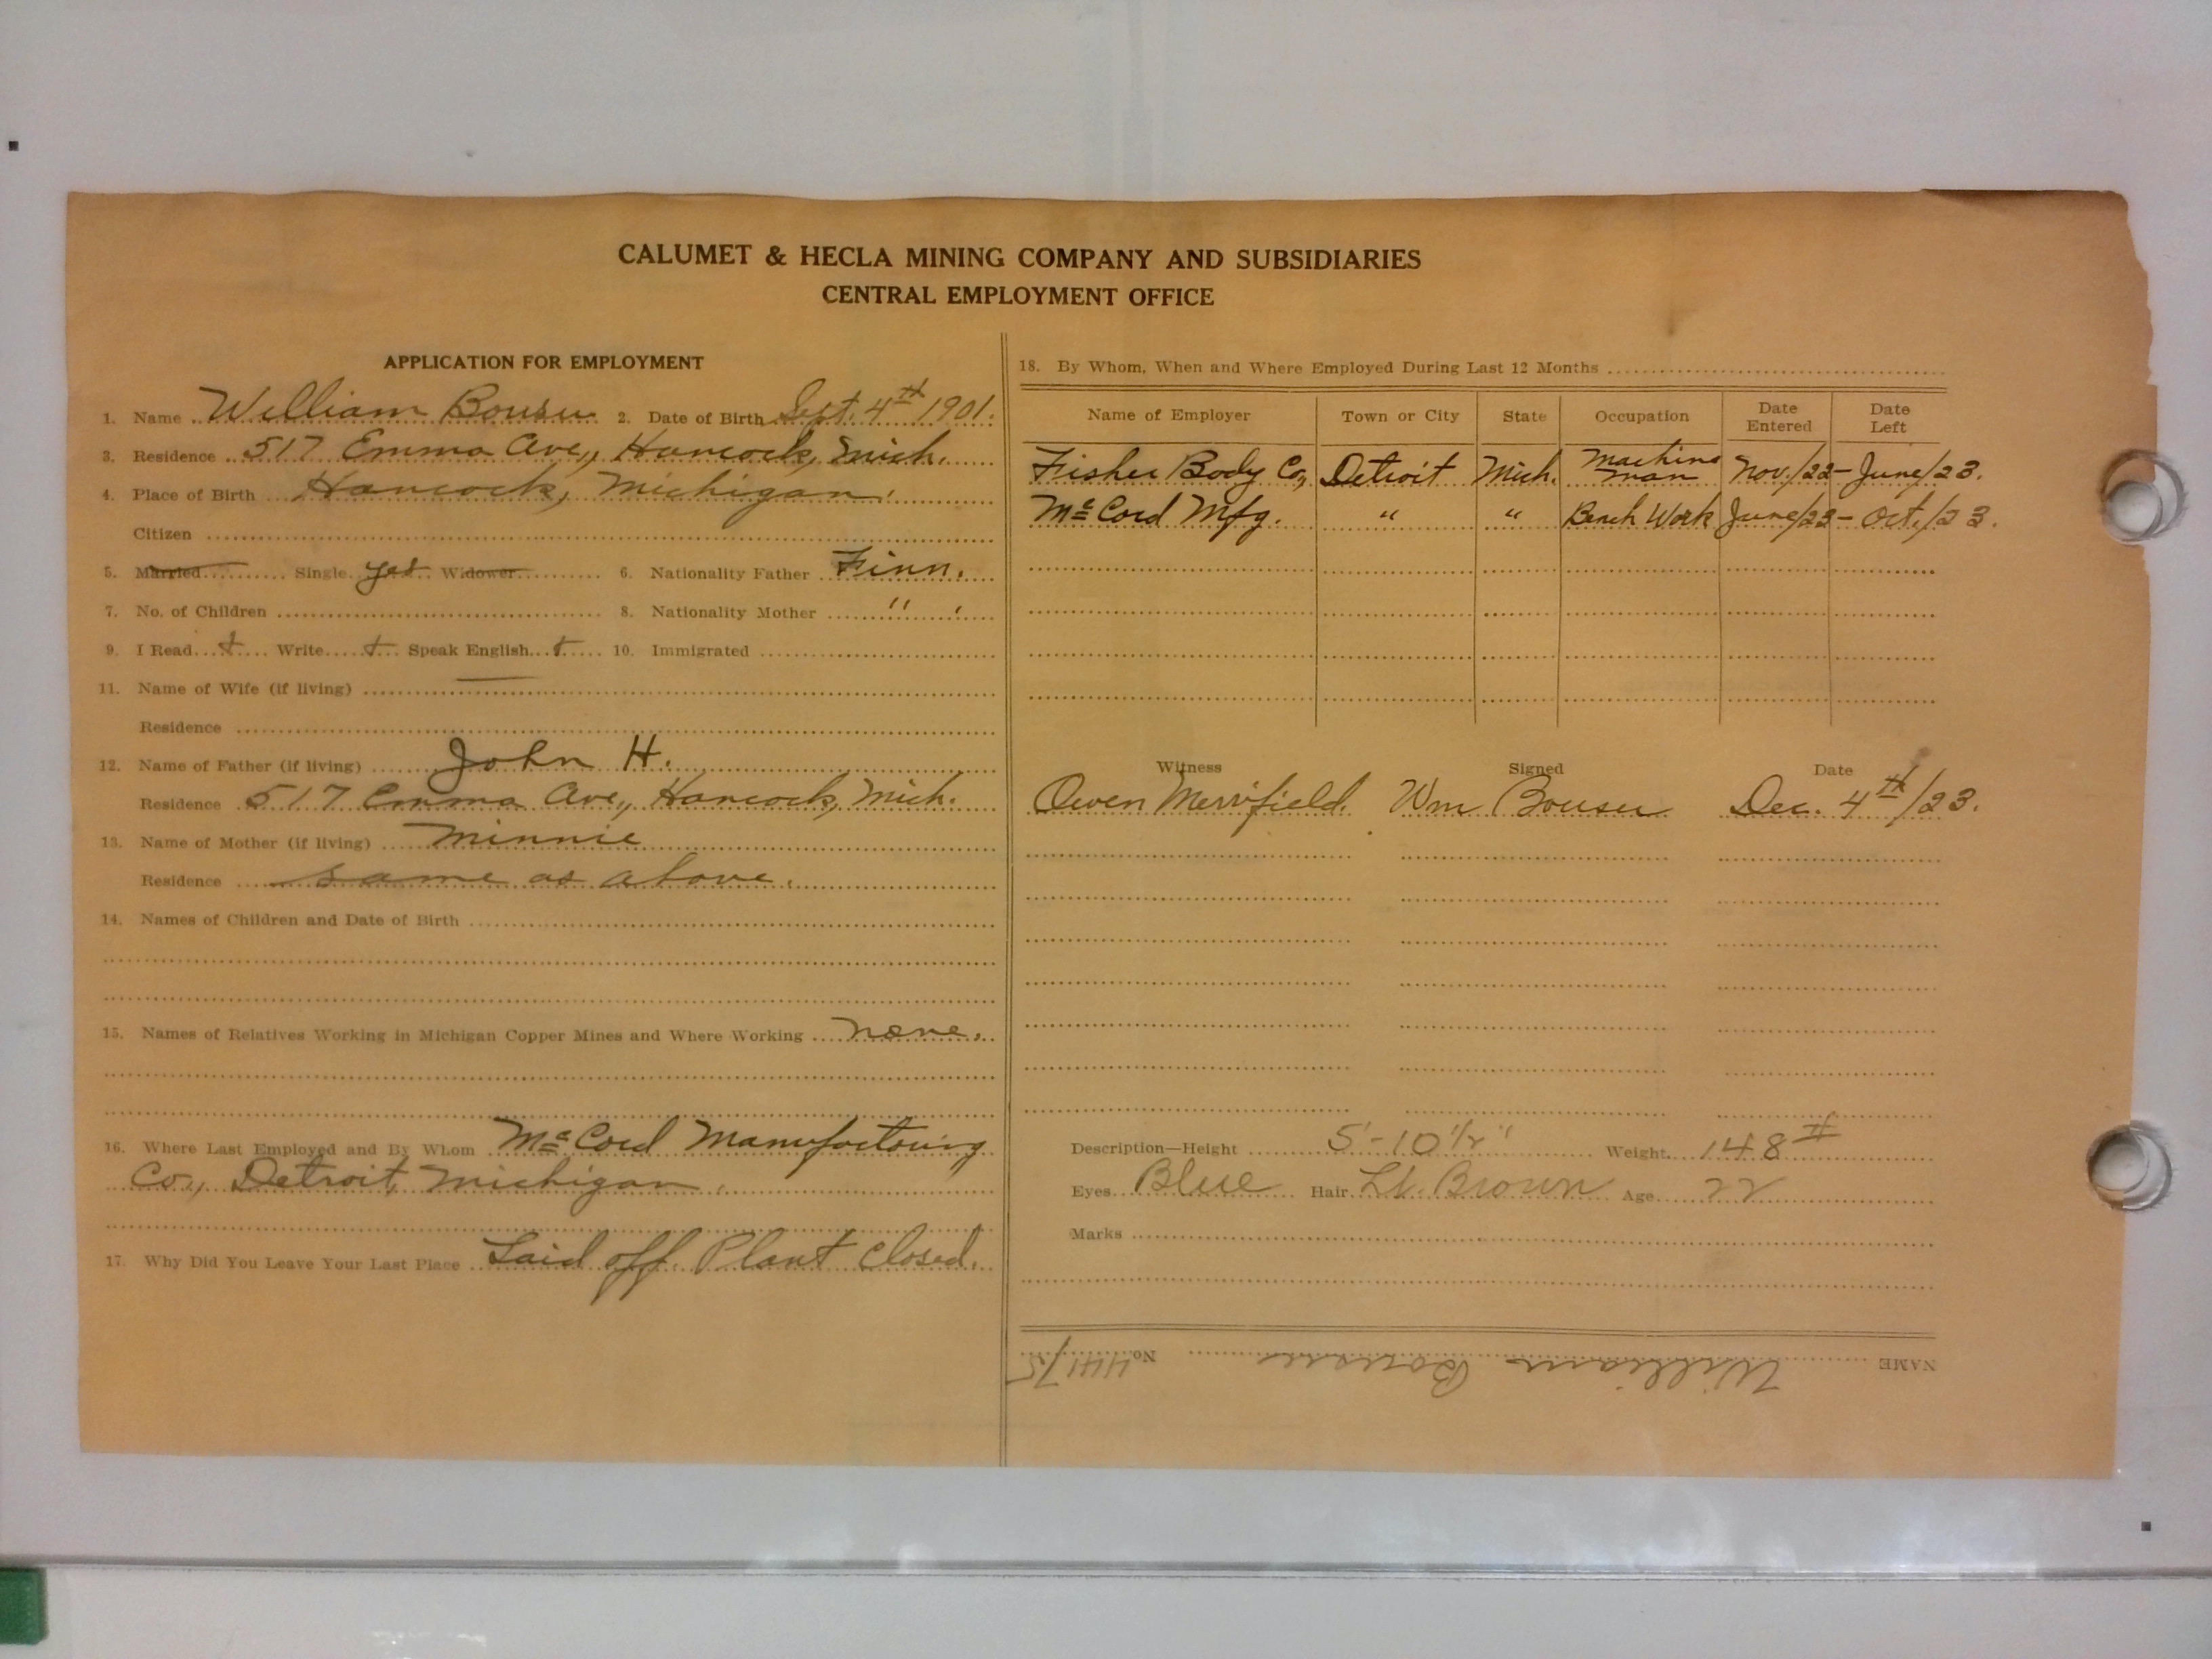 CALUMET & HECLA MINING COMPANY AND SUBSIDIARIES
CENTRAL EMPLOYMENT OFFICE
APPLICATION FOR EMPLOYMENT
1. Name William Bouser 2. Date of Birth Sept. 4th 1901.
3. Residence 517 Emma Ave., Hancock, Mich.
4. Place of Birth Hancock, Michigan.
Citizen
5. Married Single yes Widower 6. Nationality Father Finn.
7. No. of Children 8. Nationality Mother " .
9. I Read + Write + Speak English + 10. Immigrated
11. Name of Wife (if living) —
Residence
12. Name of Father (if living) John H.
Residence 517 Emma Ave., Hancock, Mich.
13. Name of Mother (if living) Minnie
Residence same as above.
14. Names of Children and Date of Birth
15. Names of Relatives Working in Michigan Copper Mines and Where Working none.
16. Where Last Employed and By Whom McCord Manufactouring
Co., Detroit, Michigan.
17. Why Did You Leave Your Last Place Laid off. Plant closed.
18. By Whom, When and Where Employed During Last 12 Months
Name of Employer Town or City State Occupation Date Entered Date Left
Fisher Body Co., Detroit Mich. Machine man Nov./22 - June/23.
McCord Mfg. " " Bench Work June/23 - Oct./23.
Witness Signed Date
Owen Merrifield. Wm Bouser Dec. 4th/23.
Description—Height 5'-10 1/2" Weight 148#
Eyes Blue Hair Lt. Brown Age 22
Marks
NAME William Bouser No. 44175